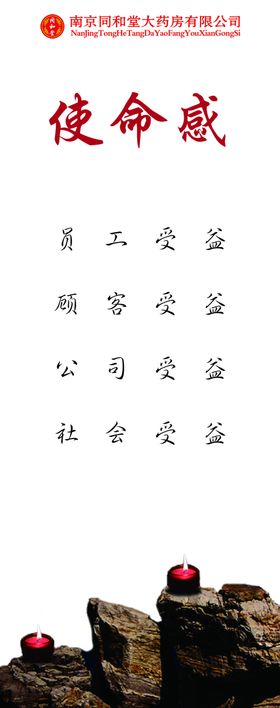 同和堂
南京同和堂大药房有限公司
NanJingTongHeTangDaYaoFangYouXianGongSi
使命感
员工受益
顾客受益
公司受益
社会受益